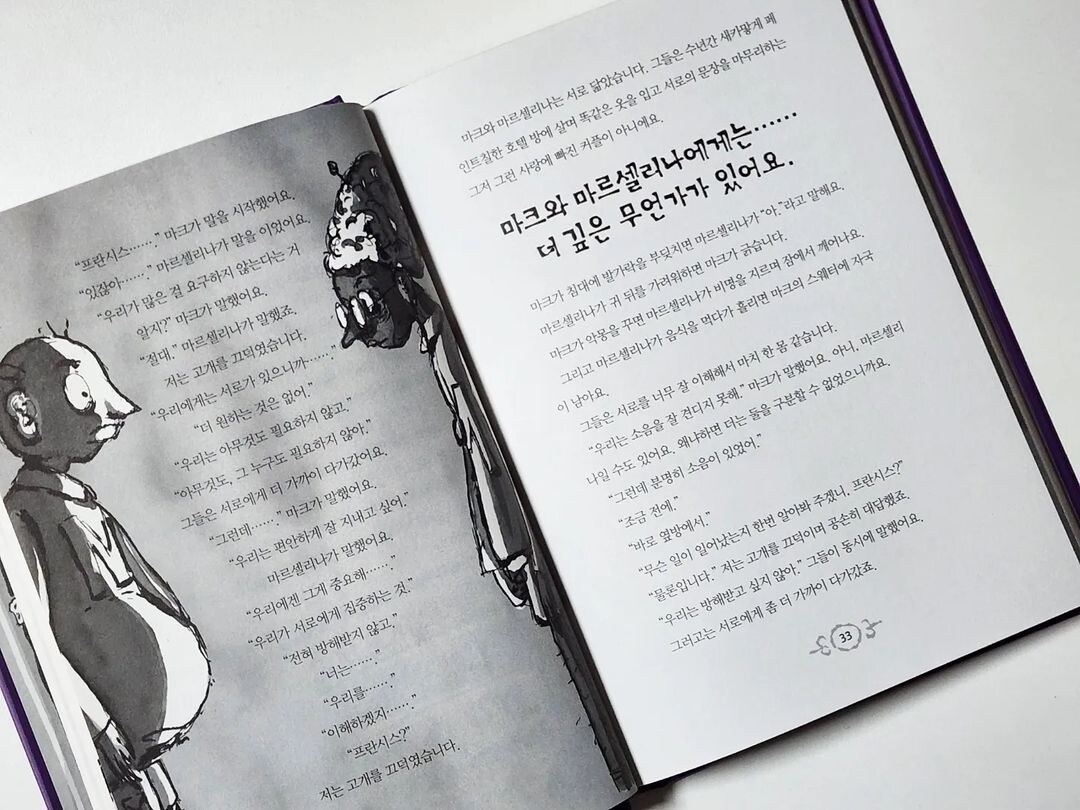 “프란시스……” 마크가 말을 시작했어요.
“있잖아……” 마르셀리나가 말을 이었어요.
“우리가 많은 걸 요구하지 않는다는 거
알지?” 마크가 말했어요.
“절대.” 마르셀리나가 말했죠.
저는 고개를 끄덕였습니다.
“우리에게는 서로가 있으니까……”
“더 원하는 것은 없어.”
“우리는 아무것도 필요하지 않고.”
“아무것도, 그 누구도 필요하지 않아.”
그들은 서로에게 더 가까이 다가갔어요.
“그런데……” 마크가 말했어요.
“우리는 편안하게 잘 지내고 싶어.”
마르셀리나가 말했어요.
“우리에겐 그게 중요해……”
“우리가 서로에게 집중하는 것.”
“전혀 방해받지 않고.”
“너는……”
“우리를……”
“이해하겠지……”
“프란시스?”
저는 고개를 끄덕였습니다.
마크와 마르셀리나는 서로 닮았습니다. 그들은 수년간 새카맣게 페
인트칠한 호텔 방에 살며 똑같은 옷을 입고 서로의 문장을 마무리하는
그저 그런 사랑에 빠진 커플이 아니에요.
마크와 마르셀리나에게는……
더 깊은 무언가가 있어요.
마크가 침대에 발가락을 부딪치면 마르셀리나가 “아.”라고 말해요.
마르셀리나가 귀 뒤를 가려워하면 마크가 긁습니다.
마크가 악몽을 꾸면 마르셀리나가 비명을 지르며 잠에서 깨어나요.
그리고 마르셀리나가 음식을 먹다가 흘리면 마크의 스웨터에 자국
이 남아요.
그들은 서로를 너무 잘 이해해서 마치 한 몸 같습니다.
“우리는 소음을 잘 견디지 못해.” 마크가 말했어요. 아니, 마르셀리
나일 수도 있어요. 왜냐하면 더는 둘을 구분할 수 없었으니까요.
“그런데 분명히 소음이 있었어.”
“조금 전에.”
“바로 옆방에서.”
“무슨 일이 일어났는지 한번 알아봐 주겠니, 프란시스?”
“물론입니다.” 저는 고개를 끄덕이며 공손히 대답했죠.
“우리는 방해받고 싶지 않아.” 그들이 동시에 말했어요.
그러고는 서로에게 좀 더 가까이 다가갔죠.
33